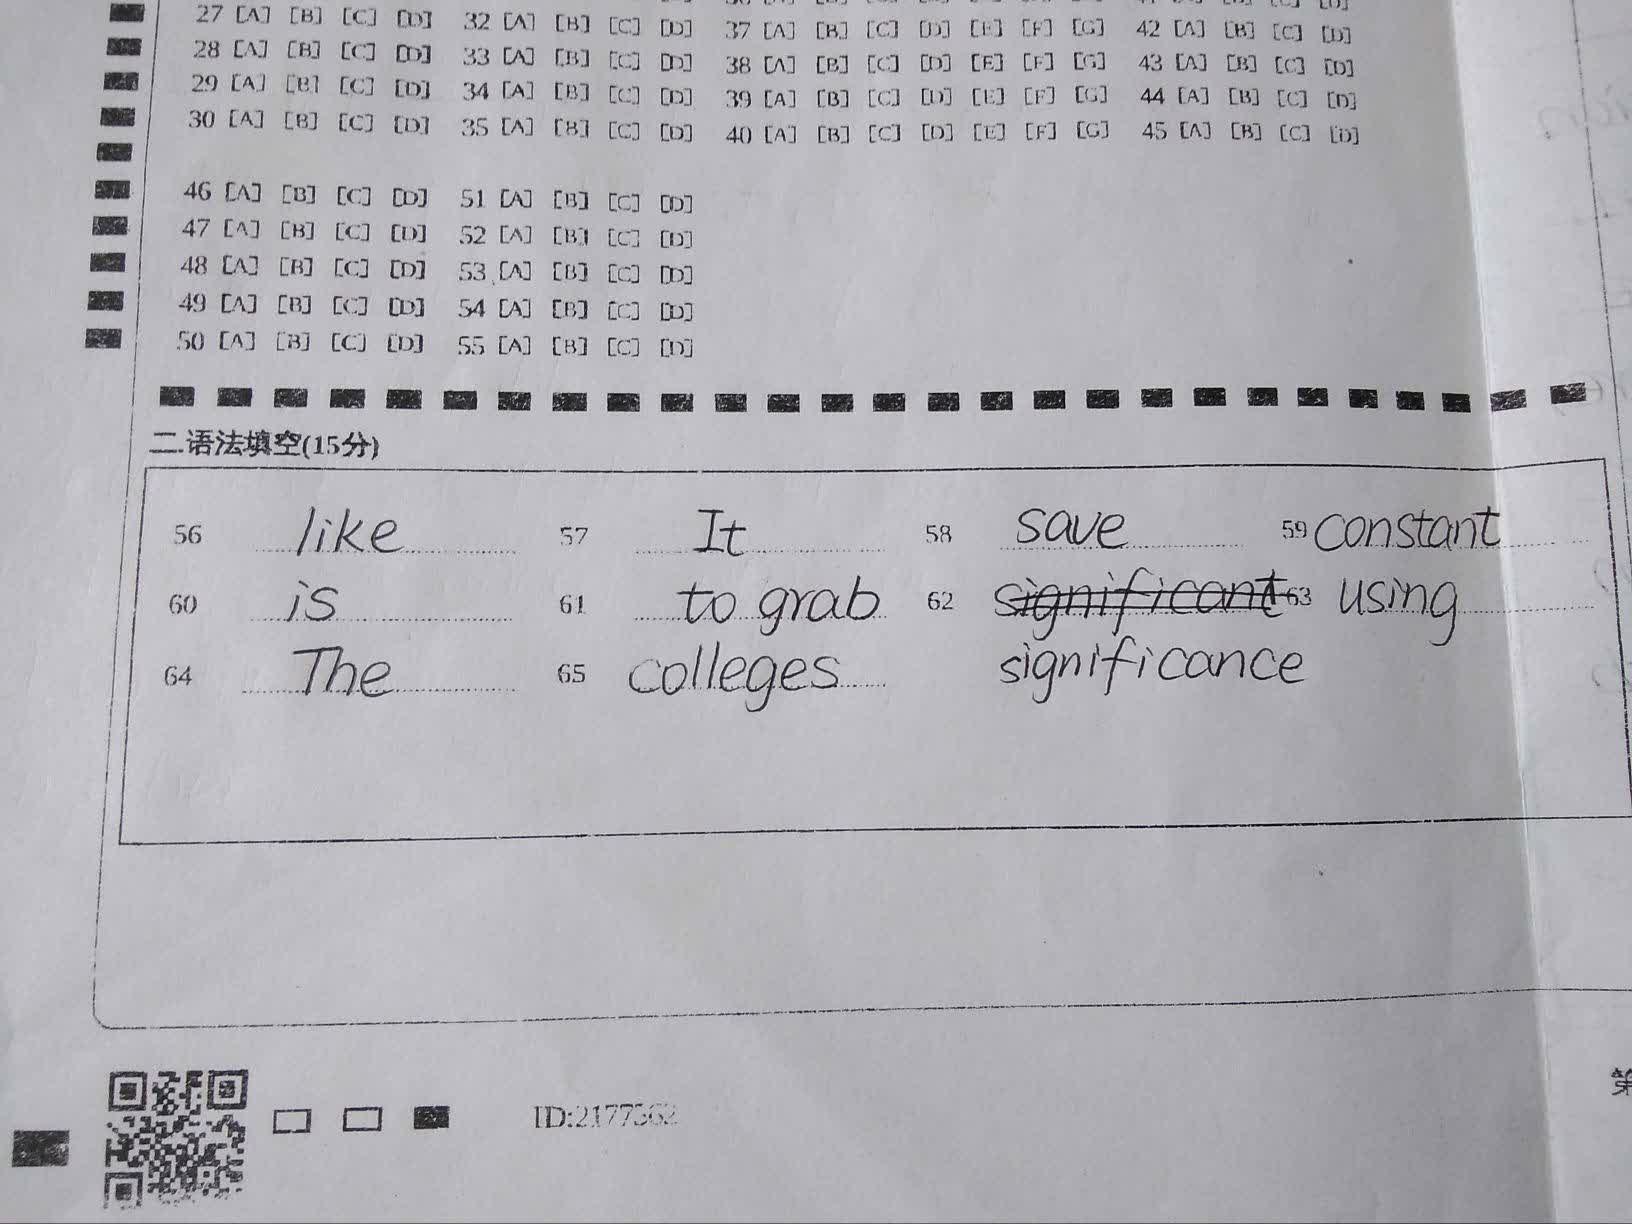 27 [A] [B] [C] [D] 32 [A] [B] [C] [D] 37 [A] [B] [C] [D] [E] [F] [G] 42 [A] [B] [C] [D]
28 [A] [B] [C] [D] 33 [A] [B] [C] [D] 38 [A] [B] [C] [D] [E] [F] [G] 43 [A] [B] [C] [D]
29 [A] [B] [C] [D] 34 [A] [B] [C] [D] 39 [A] [B] [C] [D] [E] [F] [G] 44 [A] [B] [C] [D]
30 [A] [B] [C] [D] 35 [A] [B] [C] [D] 40 [A] [B] [C] [D] [E] [F] [G] 45 [A] [B] [C] [D]
46 [A] [B] [C] [D] 51 [A] [B] [C] [D]
47 [A] [B] [C] [D] 52 [A] [B] [C] [D]
48 [A] [B] [C] [D] 53 [A] [B] [C] [D]
49 [A] [B] [C] [D] 54 [A] [B] [C] [D]
50 [A] [B] [C] [D] 55 [A] [B] [C] [D]
二.语法填空(15分)
56 like 57 It 58 save 59 constant
60 is 61 to grab 62 significant 63 using
64 The 65 colleges significance
ID:2177562
第